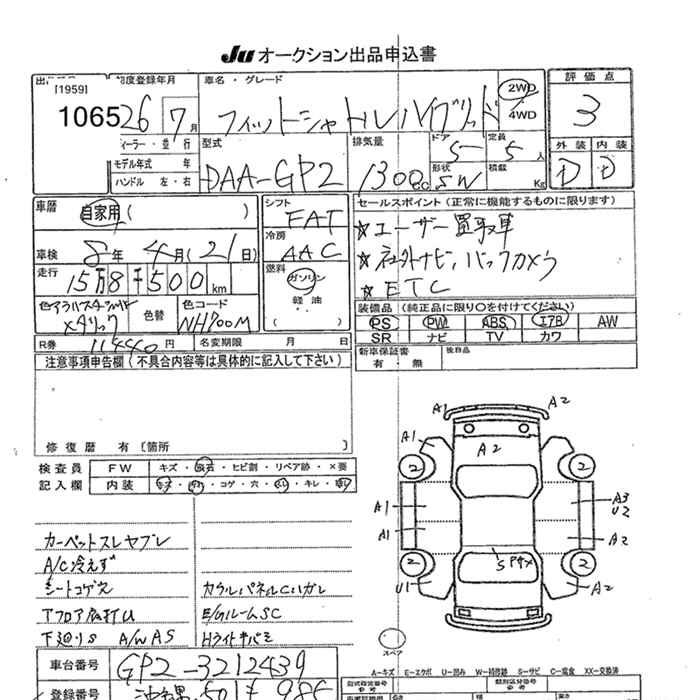 Ju オークション出品申込書
[1959]
1065
初度登録年月
26 7月
車名・グレード
フィットシャトルハイブリッド
2WD
4WD
評価点
3
外装 内装
D D
ディーラー・並行
モデル年式 年
ハンドル 左・右
型式
DAA-GP2
排気量
1300cc
ドア
5
形状
SW
定員
5人
積載
Kg
車歴 自家用( )
シフト
FAT
冷房
AAC
燃料
ガソリン
軽油
( )
セールスポイント(正常に機能するものに限ります)
☆ユーザー買取車
☆社外ナビ、バックカメラ
☆ETC
車検 8年 4月(21日)
走行 15万8千500km
色
メタリック
色替
色コード
NH700M
装備品(純正品に限り○を付けてください)
PS PW ABS エアB AW
SR ナビ TV カワ
R券 11440円
名変期限 月 日
新車保証書
有・無
後日品
注意事項申告欄(不具合内容等は具体的に記入して下さい)
修復歴 有〔箇所 〕
検査員
記入欄
FW キズ・飛石・ヒビ割・リペア跡・×要
内装 キズ・汚れ・コゲ・穴・スレ・キレ・
カーペットスレヤブレ
A/C冷えず
シートコゲ穴
カウルパネルCハガレ
Tフロア底打U
E/GルームSC
下廻りS A/WAS
Hライトキバミ
A1 A2
A1
A2
2 2
A1 A3
U2
A1 A2
S
2 2
U1 A2
スペア
車台番号 GP2-3212439
登録番号
A-キズ E-エクボ U-凹み W-補修跡 S-サビ C-腐食 XX-交換済